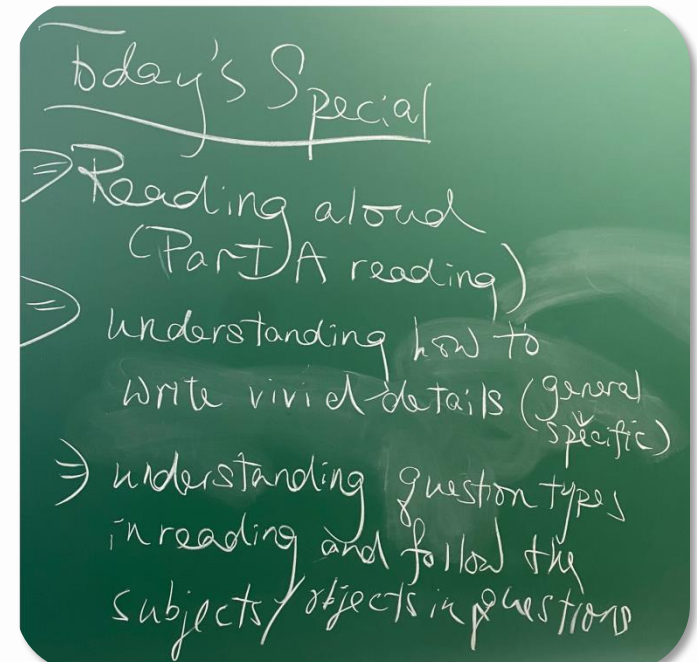 Today's Special
⇒ Reading aloud
(Part A reading)
⇒ understanding how to
write vivid details (general
↓
specific)
⇒ understanding question types
in reading and follow the
subjects/objects in questions